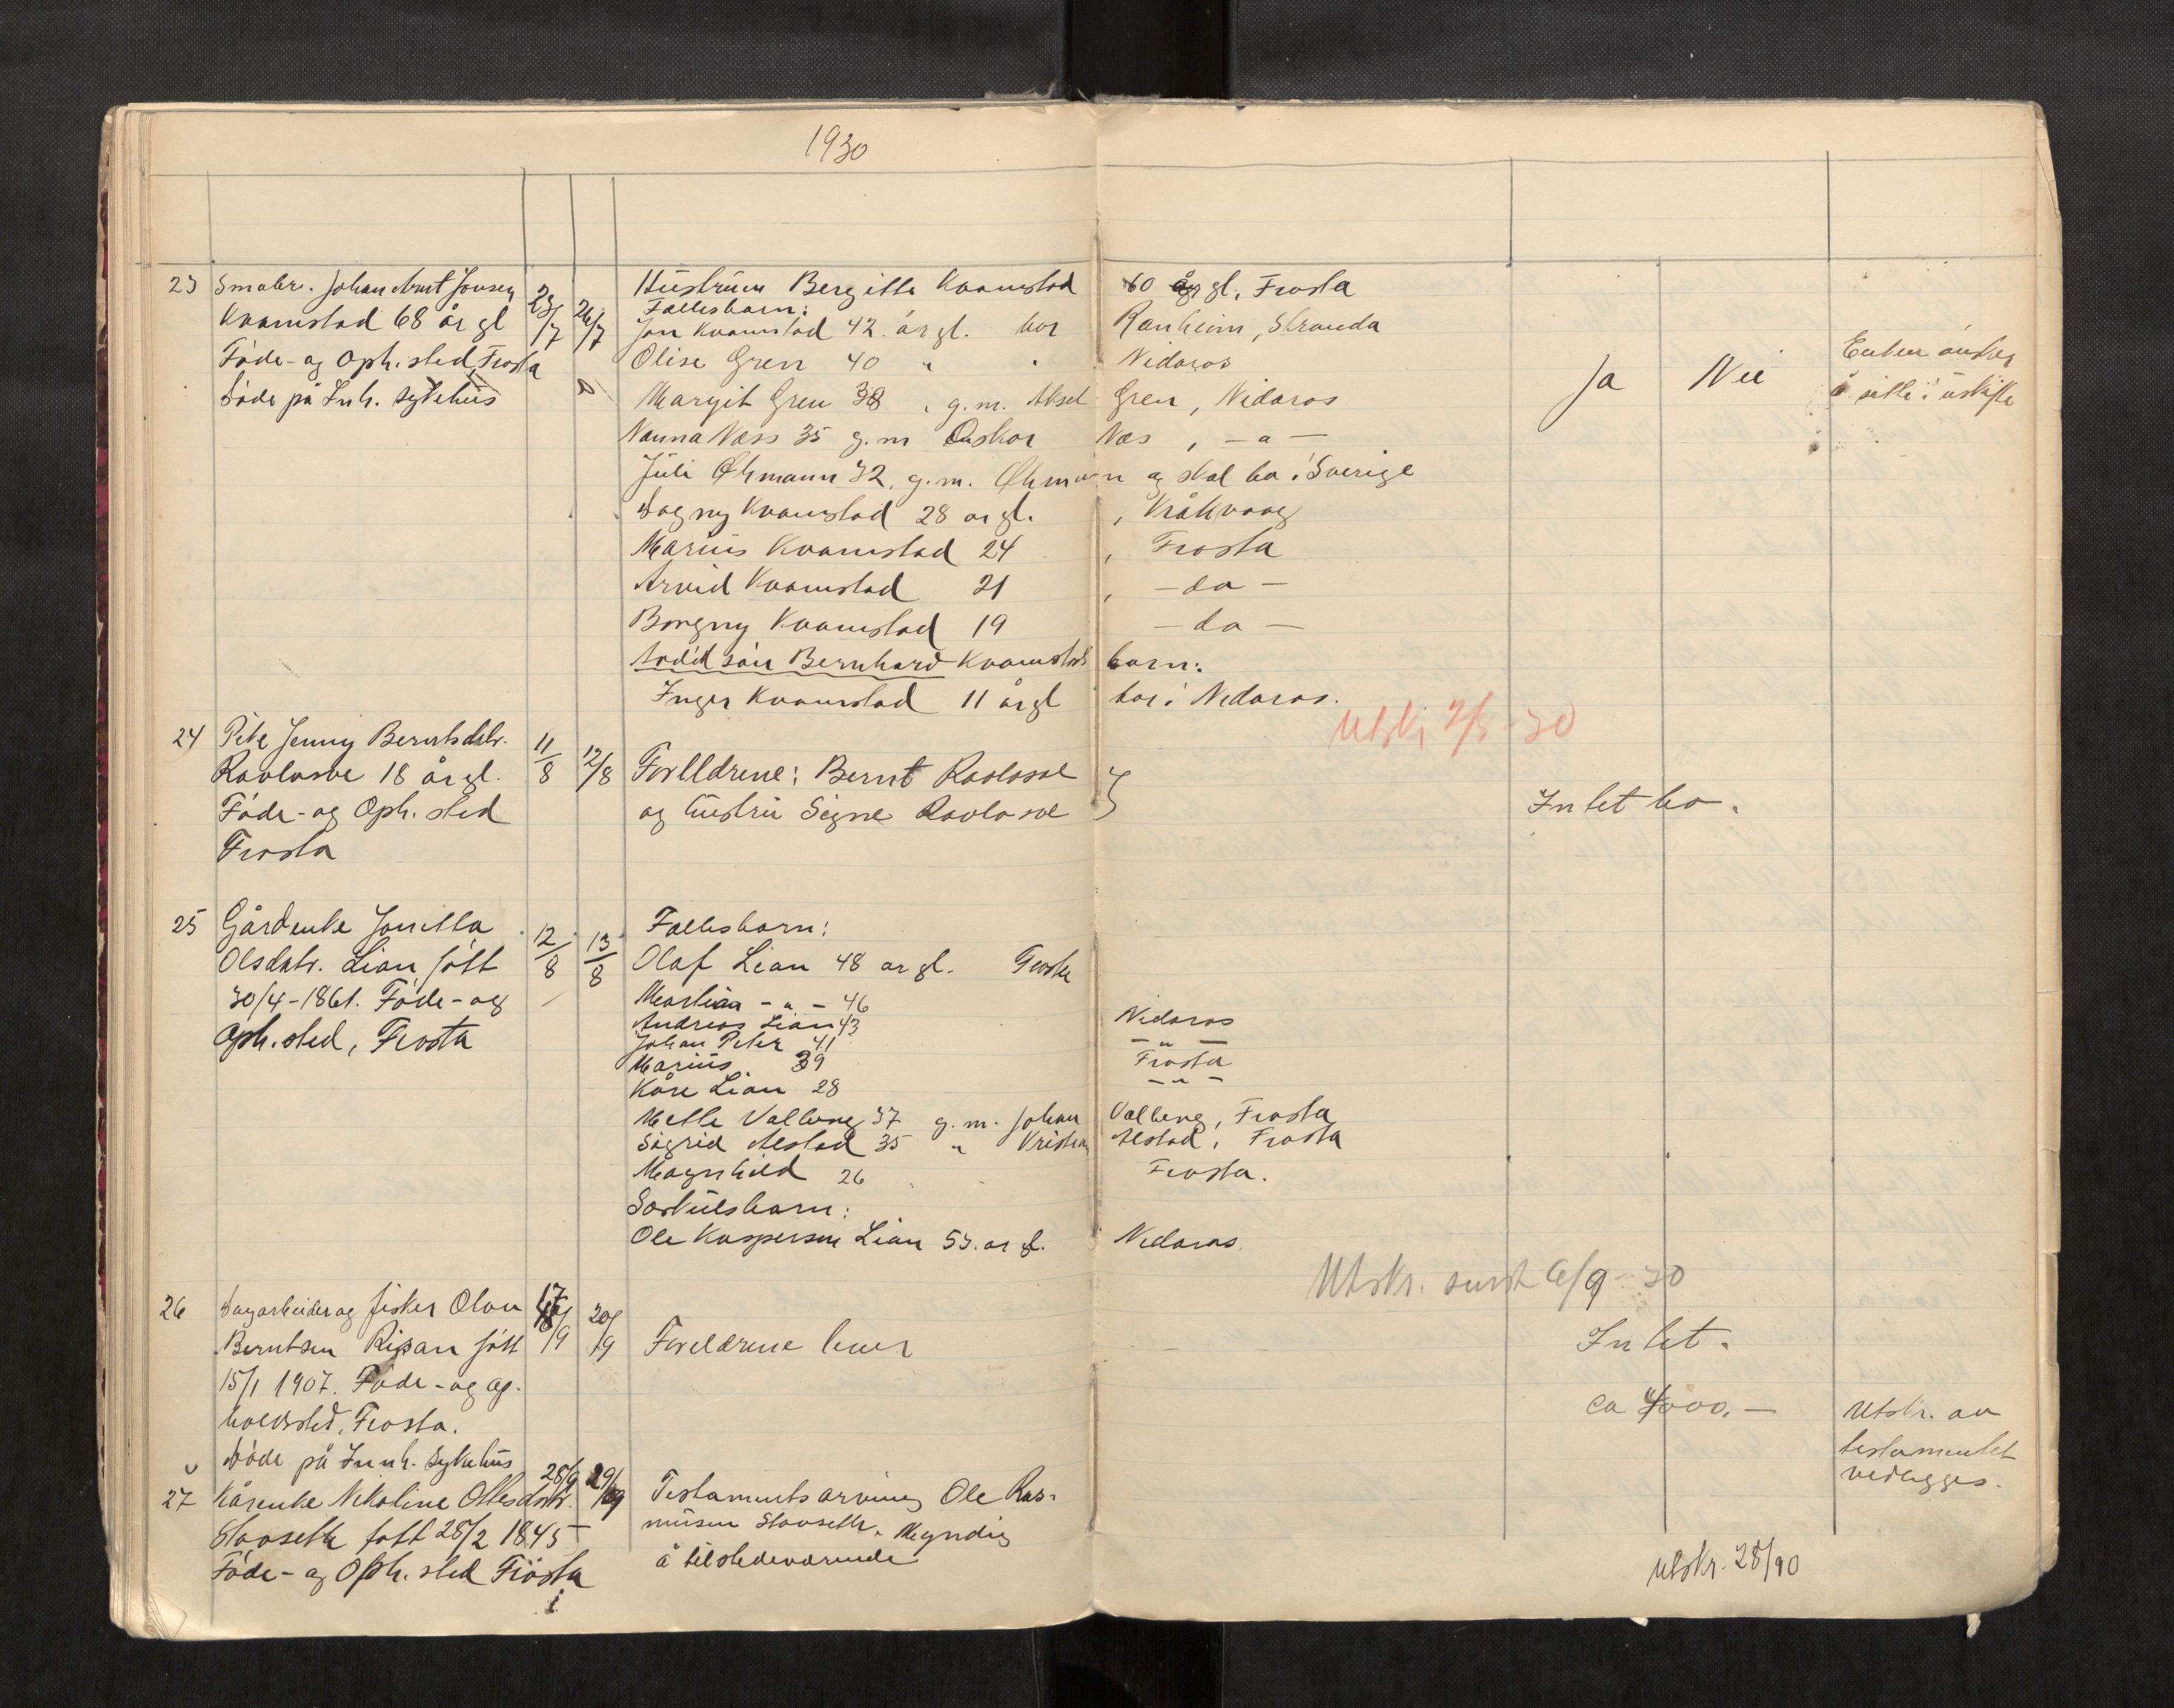 1930
23 Småbr. Johan Arnt Jonsen 23/7 26/7 Hustruen Bergitte Kvamstad 60 år gl., Frosta
Kvamstad 68 år gl Fællesbarn:
Jon Kvamstad 42 år gl. bor Ranheim, Strinda
Føde- og Oph.sted Frosta Olise Gren 40 " " Nidaros
Døde på Inh. Sykehus Margit Gren 38 , g.m. Aksel Gren, Nidaros
Ja Nei Enken ønsker
å sitte i uskifte
Nanna Næss 35 g.m Oskar Næs , - " -
Juli Øhmann 32, g.m. Øhmann og skal bo i Sverige
Dagny Kvamstad 28 år gl. , Kråkvaag
Marius Kvamstad 24 , Frosta
Arvid Kvamstad 21 , - do -
Borgny Kvamstad 19 - do -
Avdød søn Bernhard Kvamstads barn:
Inger Kvamstad 11 år gl bor i Nidaros.
24 Pike Jenny Berntsdtr. 11/8 12/8
Ravlosve 18 år gl. Forlldrene: Bernt
Føde- og Oph. sted og hustru Signe
Frosta
Intet bo.
25 Gårdenke Jonetta 12/8 13/8 Fællesbarn:
Olsdatr. Lian født Olaf Lian 48 år gl. Frosta
30/4-1861. Føde- og Martin - " - 46
Oph.sted, Frosta Andreas Lian 43 Nidaros
Johan Peter 41 - " -
Marius 39 Frosta
Kåre Lian 28 - " -
Mette Valberg 37 g.m. Johan Valberg, Frosta
Sigrid Alstad 35 " Kristian Alstad, Frosta
Magnhild 26 Frosta.
Særkulsbarn:
Ole Kaspersen Lian 53. år gl. Nidaros.
Utskr. sendt 6/9-30
26 Dagarbeider og fisker Olav 17/9 20/9
Berntsen Ripan født Foreldrene lever Intet.
15/1 1907. Føde- og op-
holdssted, Frosta.
Døde på Innh. Sykehus
27 Kårenke Nikoline Ollesdatr. 28/9 29/9 Testamentsarving Ole Ras-
ca 4000.- Utskr. av
testamentet
vedlegges.
født 28/2 1845 musen . Myndig
Føde- og Oph. sted Frosta å tilstedeværende
Utskr. 28/10